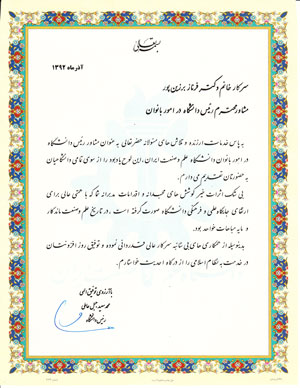 بسمه تعالی
آذر ماه ۱۳۹۲
سرکار خانم دکتر فرناز برزین پور
مشاور محترم رئیس دانشگاه در امور بانوان
به پاس خدمات ارزنده و تلاش های مسئولانه حضرتعالی به عنوان مشاور رئیس دانشگاه
در امور بانوان دانشگاه علم و صنعت ایران، این لوح یادبود را از سوی تمامی دانشگاهیان
به حضورتان تقدیم می دارم.
بی شک اثرات خیر کوشش های مجدانه و اقدامات مدبرانه شما که با همتی عالی برای
ارتقای جایگاه علمی و فرهنگی دانشگاه صورت گرفته است، در تاریخ علم و صنعت ماندگار و
مایه مباهات خواهد بود.
بدینوسیله از همکاری های بی شائبه سرکار عالی قدردانی نموده و توفیق روز افزونتان
در خدمت به نظام اسلامی را از درگاه احدیت خواستارم.
با آرزوی توفیق الهی
محمد سعید جبل عاملی
رئیس دانشگاه